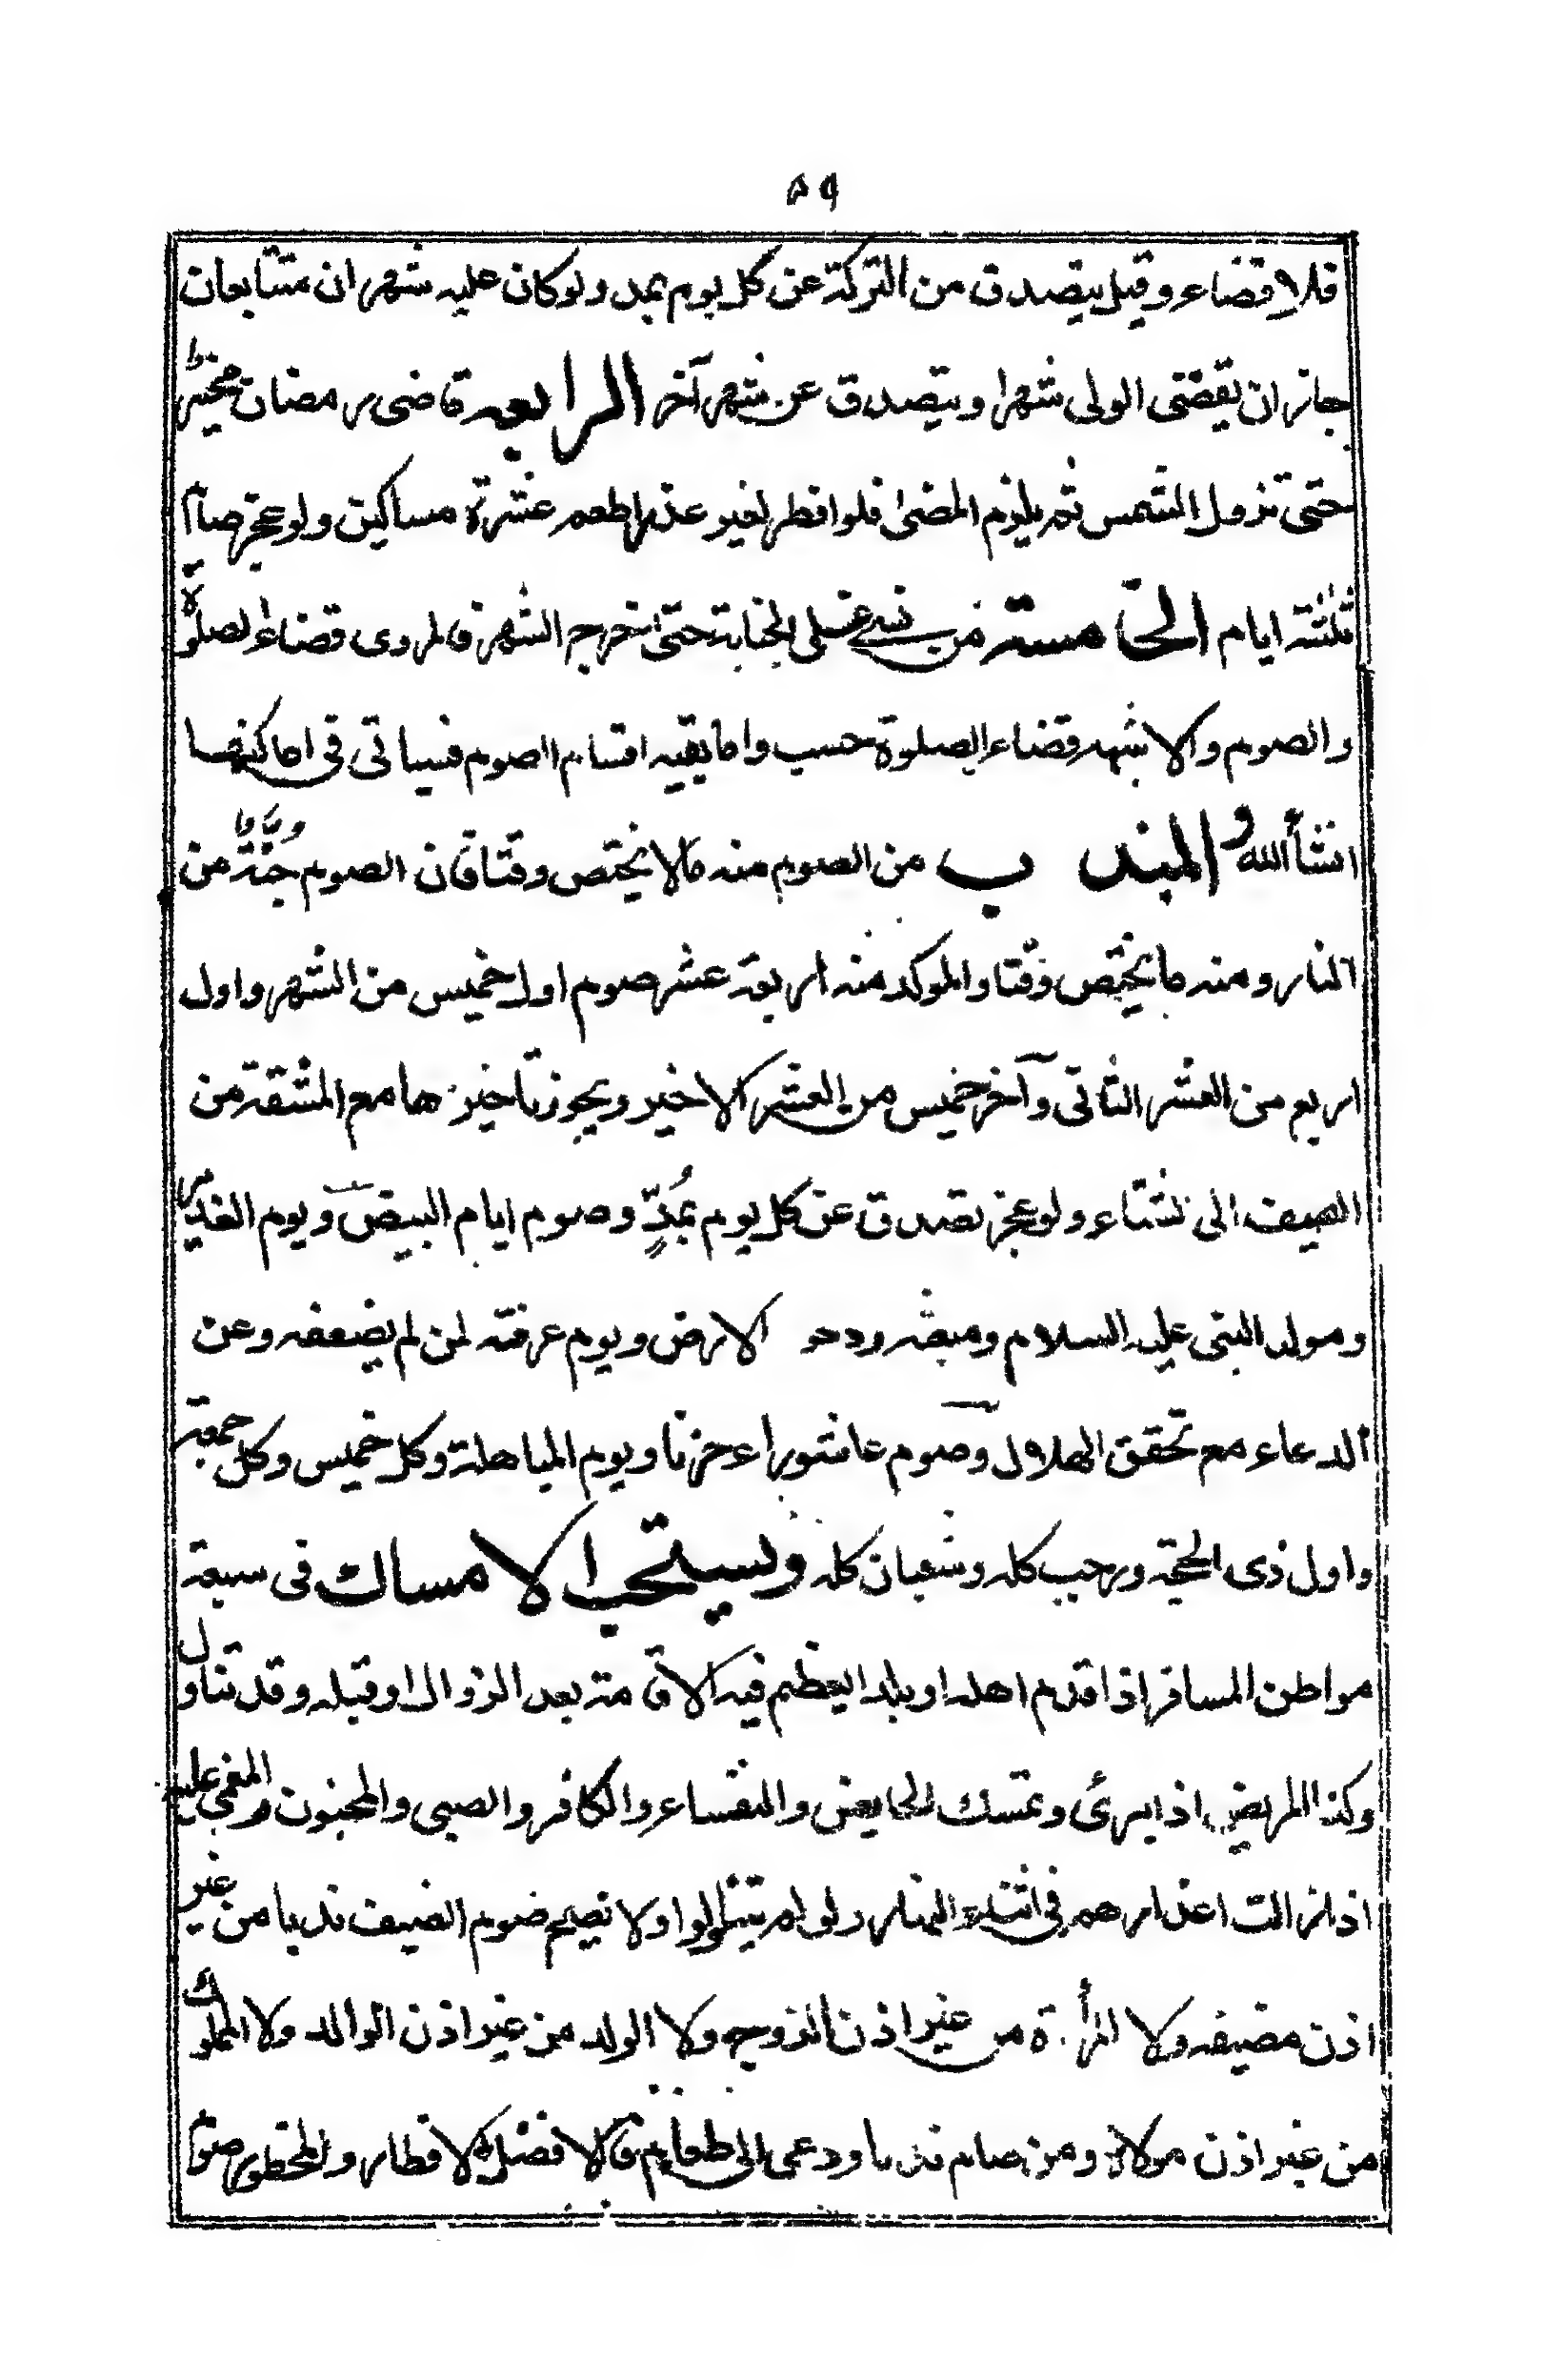 ٥٩
فلا قضاء وقيل يتصدق من التركة عن كل يوم بمد ولو كان عليه شهران متتابعان
جاز ان يقضى الولى شهرا ويتصدق عن شهر آخر الرابعة قاضى رمضان مخير
حتى تزول الشمس ثم يلزم المضى فلو افطر لغير عذر اطعم عشرة مساكين ولو عجز صام
ثلثة ايام الخامسة من نسى غسل الجنابة حتى خرج الشهر فالمروى قضاء الصلوة
والصوم والاشهر قضاء الصلوة حسب واما بقيه اقسام الصوم فسياتى فى اماكنها
انشأ الله والمندوب من الصوم منه مالا يختص وقتا فان الصوم جنة من
النار ومنه ما يختص وقتا والموكد منه اربعة عشر صوم اول خميس من الشهر واول
اربع من العشر الثانى وآخر خميس من العشر الاخير ويجوز تاخيرها مع المشقة من
الصيف الى شتاء ولو عجز تصدق عن كل يوم بمُدٍّ وصوم ايام البيض ويوم الغدير
ومولد النبى عليه السلام ومبعثه ودحو الارض ويوم عرفة لمن لم يضعفه وعن
الدعاء مع تحقق الهلال وصوم عاشوراء حزنا ويوم المباهلة وكل خميس وكل جمعة
واول ذى الحجة ورجب كله وشعبان كله ويستحب الامساك فى سبعة
مواطن المسافر اذا قدم اهله او بلد العظم فيه الاقامة بعد الزوال او قبله وقد تناول
وكذا المريض اذا برئ وتمسك الحايض والنفساء والكافر والصبى والمجنون والمغمى عليه
اذا زالت اعذارهم فى اثناء النهار ولو لم يتناولوا ولا يصح صوم الضيف ندبا من غير
اذن مضيفه ولا المرأة من غير اذن الزوج ولا الولد من غير اذن الوالد ولا المملوك
من غير اذن مولاه ومن صام ندبا ودعى الى طعام فالافضل الافطار والمحظور صوم